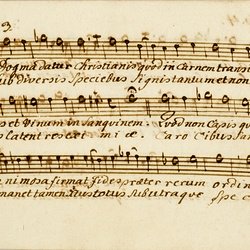 Dogma datur Christianis quod in Carnem transit
sub diversis Speciebus Signis tantum et non
et Vinum in Sanguinem. Quod non Capis quod
latent res exi mi æ. Caro Cibus San
ni mosa firmat fides præter rerum ordin
manet tamen Xtus totus Sub utraque Spe c